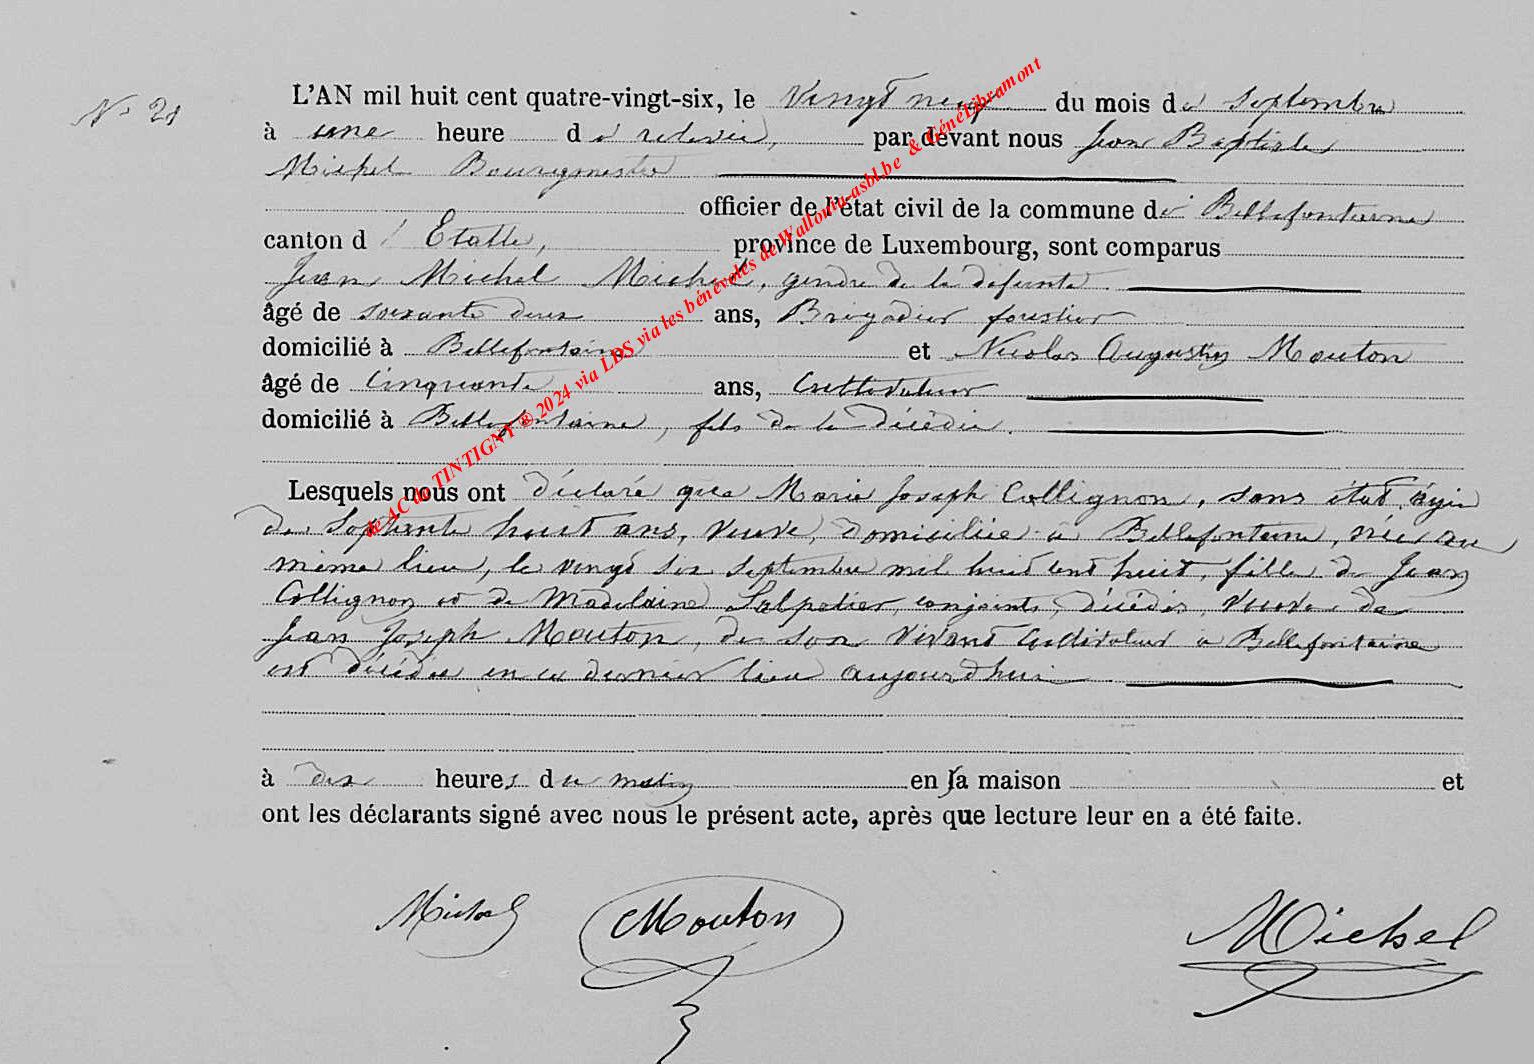 N° 21
L'AN mil huit cent quatre-vingt-six, le Vingt neuf du mois de Septembre
à une heure de relevée, par devant nous Jean Baptiste
Michel Bourgmestre
officier de l'état civil de la commune de Bellefontaine
canton d'Etalle, province de Luxembourg, sont comparus
Jean Michel Michel, gendre de la défunte
âgé de soixante deux ans, Brigadier forestier
domicilié à Bellefontaine et Nicolas Augustin Mouton
âgé de Cinquante ans, Cultivateur
domicilié à Bellefontaine, fils de la décédée.
Lesquels nous ont déclaré que Marie Joseph Collignon, sans état, âgée
de Septante huit ans, veuve, domiciliée à Bellefontaine, née au
même lieu, le vingt six septembre mil huit cent huit, fille de Jean
Collignon et de Madelaine Salpetier, conjoints, décédés, veuve de
Jean Joseph Mouton, de son vivant cultivateur à Bellefontaine
est décédée en ce dernier lieu aujourd'hui
à dix heures du matin en sa maison et
ont les déclarants signé avec nous le présent acte, après que lecture leur en a été faite.
Michel Mouton Michel
de AC de TINTIGNY ® 2024 via LDS via les bénévoles de Wallonia-asbl.be & Génélibramont